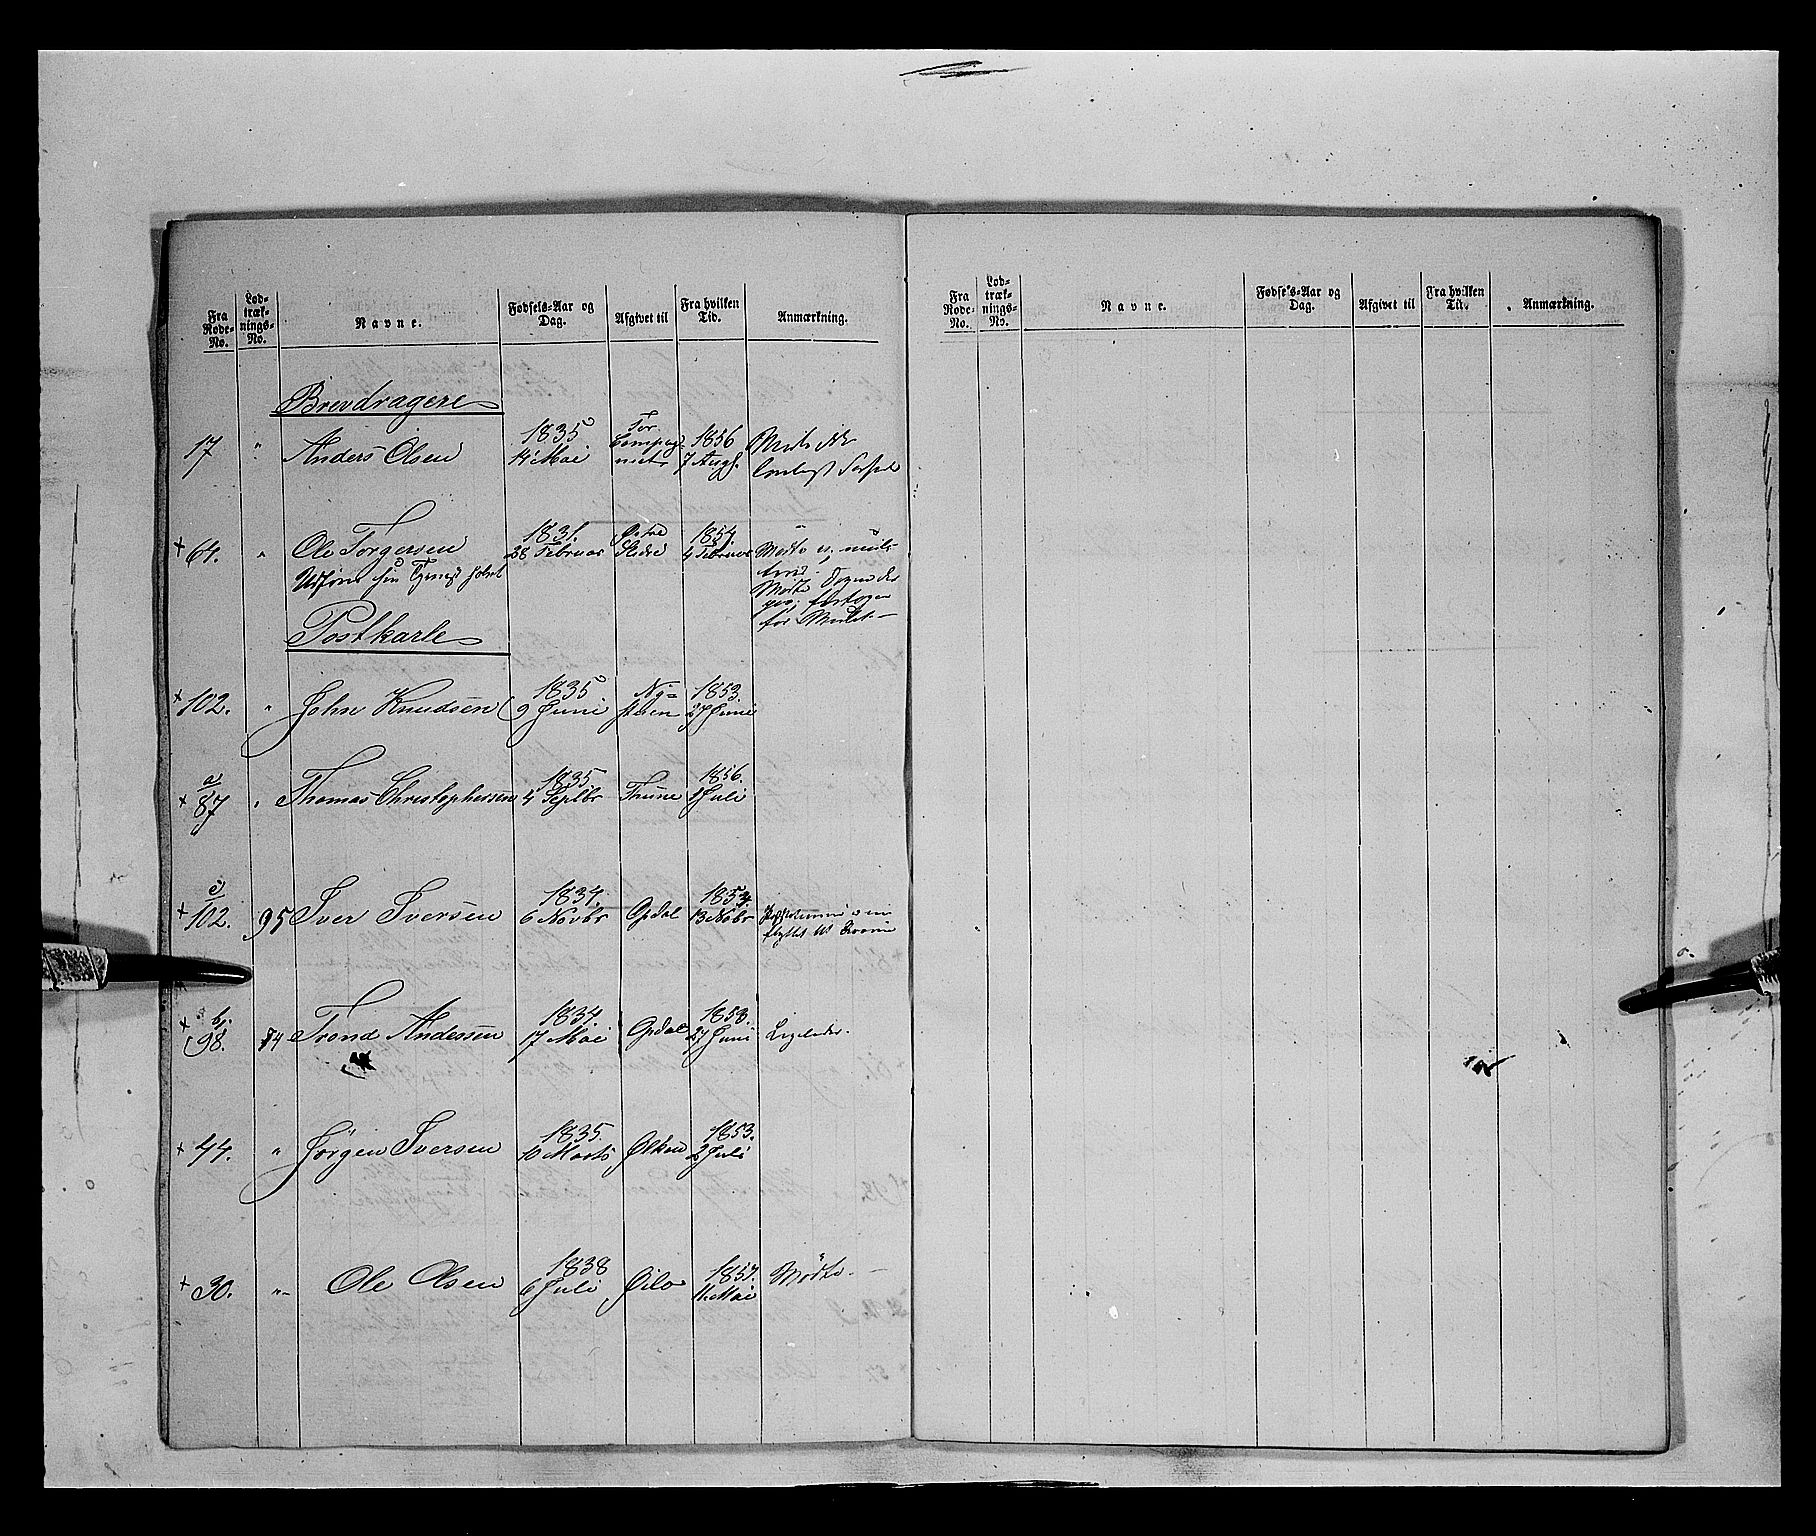 Fra Rode-No. Lod-træk-nings-No. Navne. Fødsels-Aar og Dag. Afgivet til Fra hvilken Tid. Anmærkning.
Brevdragere
17 " Anders Olsen 1835 14 Mai For Compagniet 1856 7 Augs.
+ 64. " Ole Torgersen 1831. 28 Februar Østre Slidre 1854. 4 Februar Mødte
Postkarle
+ 102. " John Knudsen 1835 9 Juni Nystuen 1853. 27 Juni
+ a/87 " Thomas Christophersen 1835 4 Septbr Thune 1856. 1 Juli
+ c/102. 95 Iver Iversen 1834. 6 Novbr Opdal 1853. 13 Nobr
+ b/98. 74 Trond Andersen 1834. 17 Mai Opdal 1853. 27 Juni Ligeledes.
+ 44. " Jørgen Iversen 1835. 10 Marts Ølken 1853. 2 Juli
+ 30. " Ole Olsen 1838 6 Juli Øilo 1857. 11 Mai Mødte.
Fra Rode-No. Lod-træk-nings-No. Navne. Fødsels-Aar og Dag. Afgivet til Fra hvilken Tid. Anmærkning.